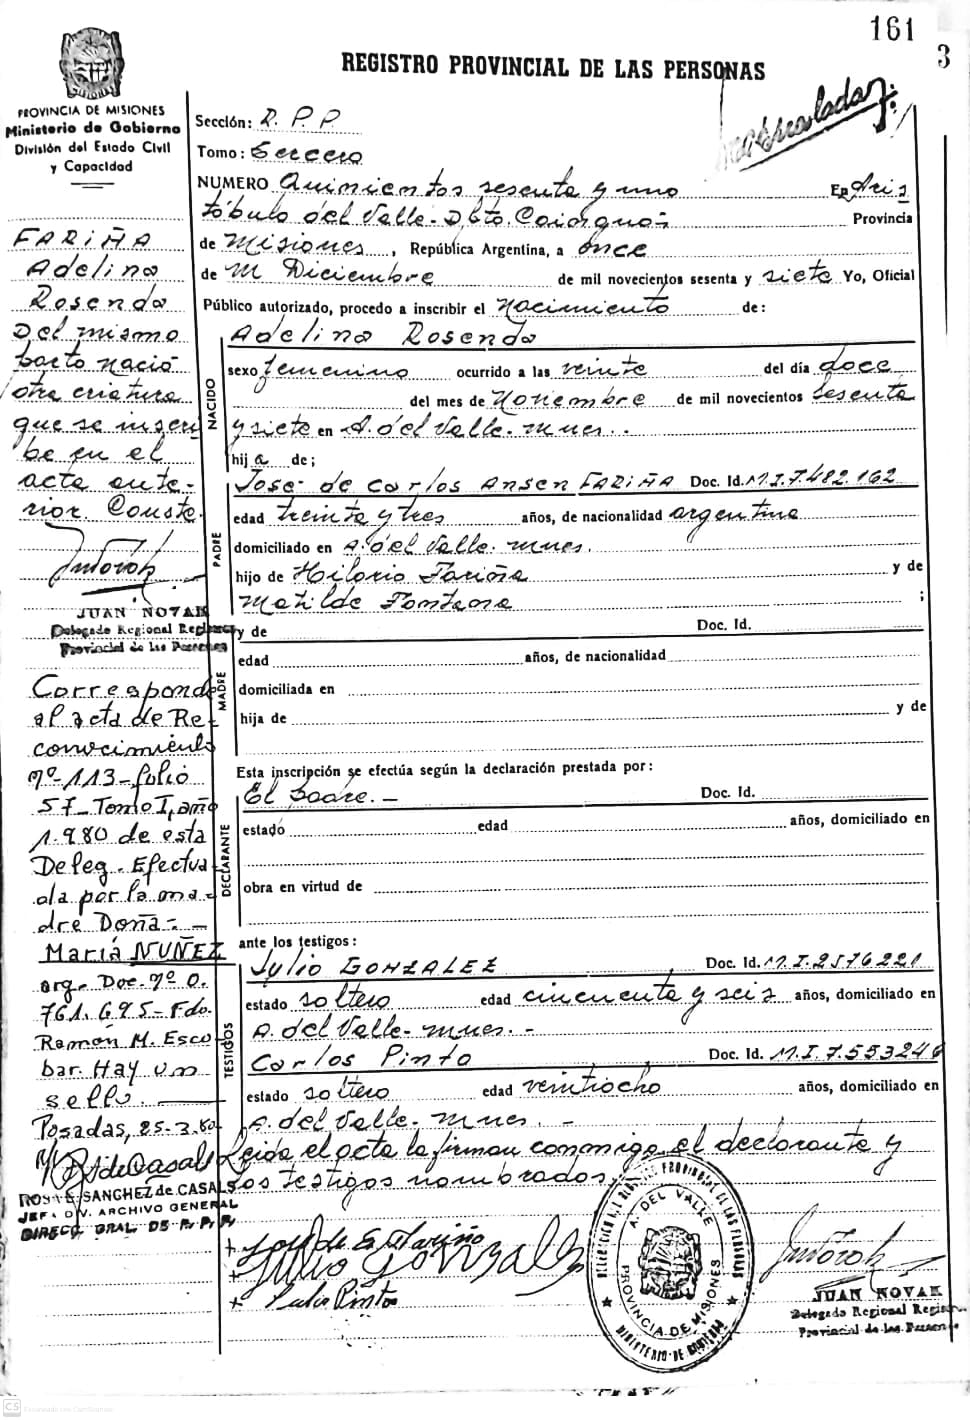 161
3
REGISTRO PROVINCIAL DE LAS PERSONAS
PROVINCIA DE MISIONES
Ministerio de Gobierno
División del Estado Civil
y Capacidad
Sección: R. P. P.
Tomo: Tercero
NUMERO Quinientos sesenta y uno En Aris
tóbulo del Valle. Dpto. Caingua- Provincia
de Misiones, República Argentina, a once
de Diciembre de mil novecientos sesenta y siete Yo, Oficial
Público autorizado, procedo a inscribir el Nacimiento de:
NACIDO
Adelina Rosenda
sexo femenino ocurrido a las veinte del día doce
del mes de Noviembre de mil novecientos sesenta
y siete en A. del Valle. Mnes..
hija de;
PADRE
José de Carlos Ansen FARIÑA Doc. Id. M.I.7.482.162
edad treinta y tres años, de nacionalidad argentina
domiciliado en A. del Valle. Mnes.
hijo de Hilario Fariña y de
Matilde Fontana ;
MADRE
y de Doc. Id.
edad años, de nacionalidad
domiciliada en
hija de y de
Esta inscripción se efectúa según la declaración prestada por:
DECLARANTE
El padre.- Doc. Id.
estado edad años, domiciliado en
obra en virtud de
ante los testigos:
TESTIGOS
Julio GONZALEZ Doc. Id. M.I.2576221
estado soltero edad cincuenta y seis años, domiciliado en
A. del Valle- Mnes.-
Carlos Pinto Doc. Id. M.I.7.553246
estado soltero edad veintiocho años, domiciliado en
A. del Valle. Mnes.-
Leida el acta la firman conmigo el declarante y
los testigos nombrados.
FARIÑA
Adelina
Rosenda
Del mismo
parto nació
otra criatura
que se inscri
be en el
acta ante-
rior. Conste.
JUAN NOVAK
Delegado Regional Registro
Provincial de las Personas
Corresponde
al acta de Re-
conocimiento
nº-113-folio
57-Tomo I, año
1.980 de esta
Deleg. Efectua
da por la ma-
dre Doña:-
María NUÑEZ
arg- Doc. nº 0.
761.695- Fdo.
Ramón M. Esco
bar. Hay un
sello.
Posadas, 25-3.80
ROSA E. SANCHEZ de CASALS
JEFA DIV. ARCHIVO GENERAL
DIRECC. GRAL. DE R. P. P.
Julio Gonzalez
Pinto
A. DEL VALLE
PROVINCIA DE MISIONES
MINISTERIO DE GOBIERNO
JUAN NOVAK
Delegado Regional Registro
Provincial de las Personas
CS Escaneado con CamScanner